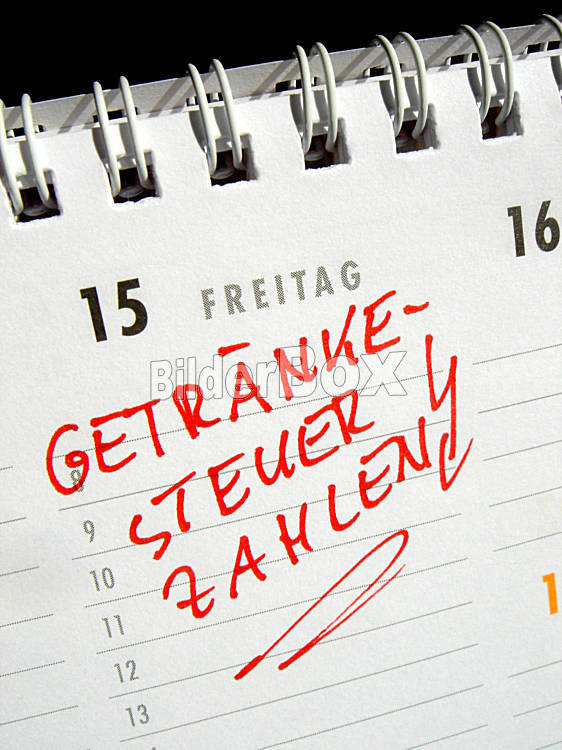 15 FREITAG
16
GETRÄNKE-
STEUER
ZAHLEN!
BilderBOX
8
9
10
11
12
13
1